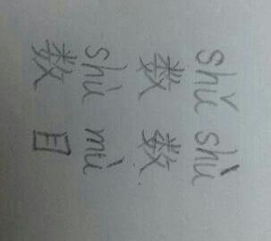 shǔ shù
数 数
shù mù
数 目